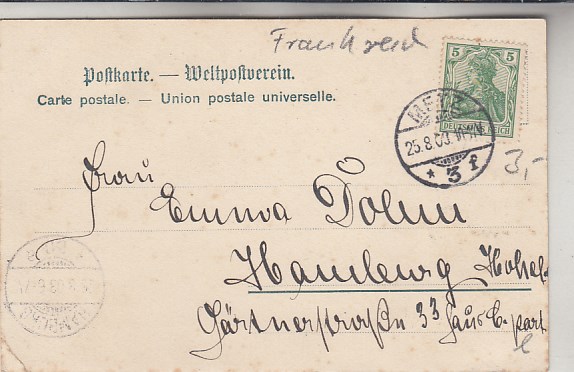 Frankreich
Postkarte. — Weltpostverein.
Carte postale. — Union postale universelle.
5 5
DEUTSCHES REICH
METZ
25.8.03.
* 3 f
3,-
Frau
Emma Dohm
Hamburg
Gärtnerstraße 33 Haus C. part
HAMBURG